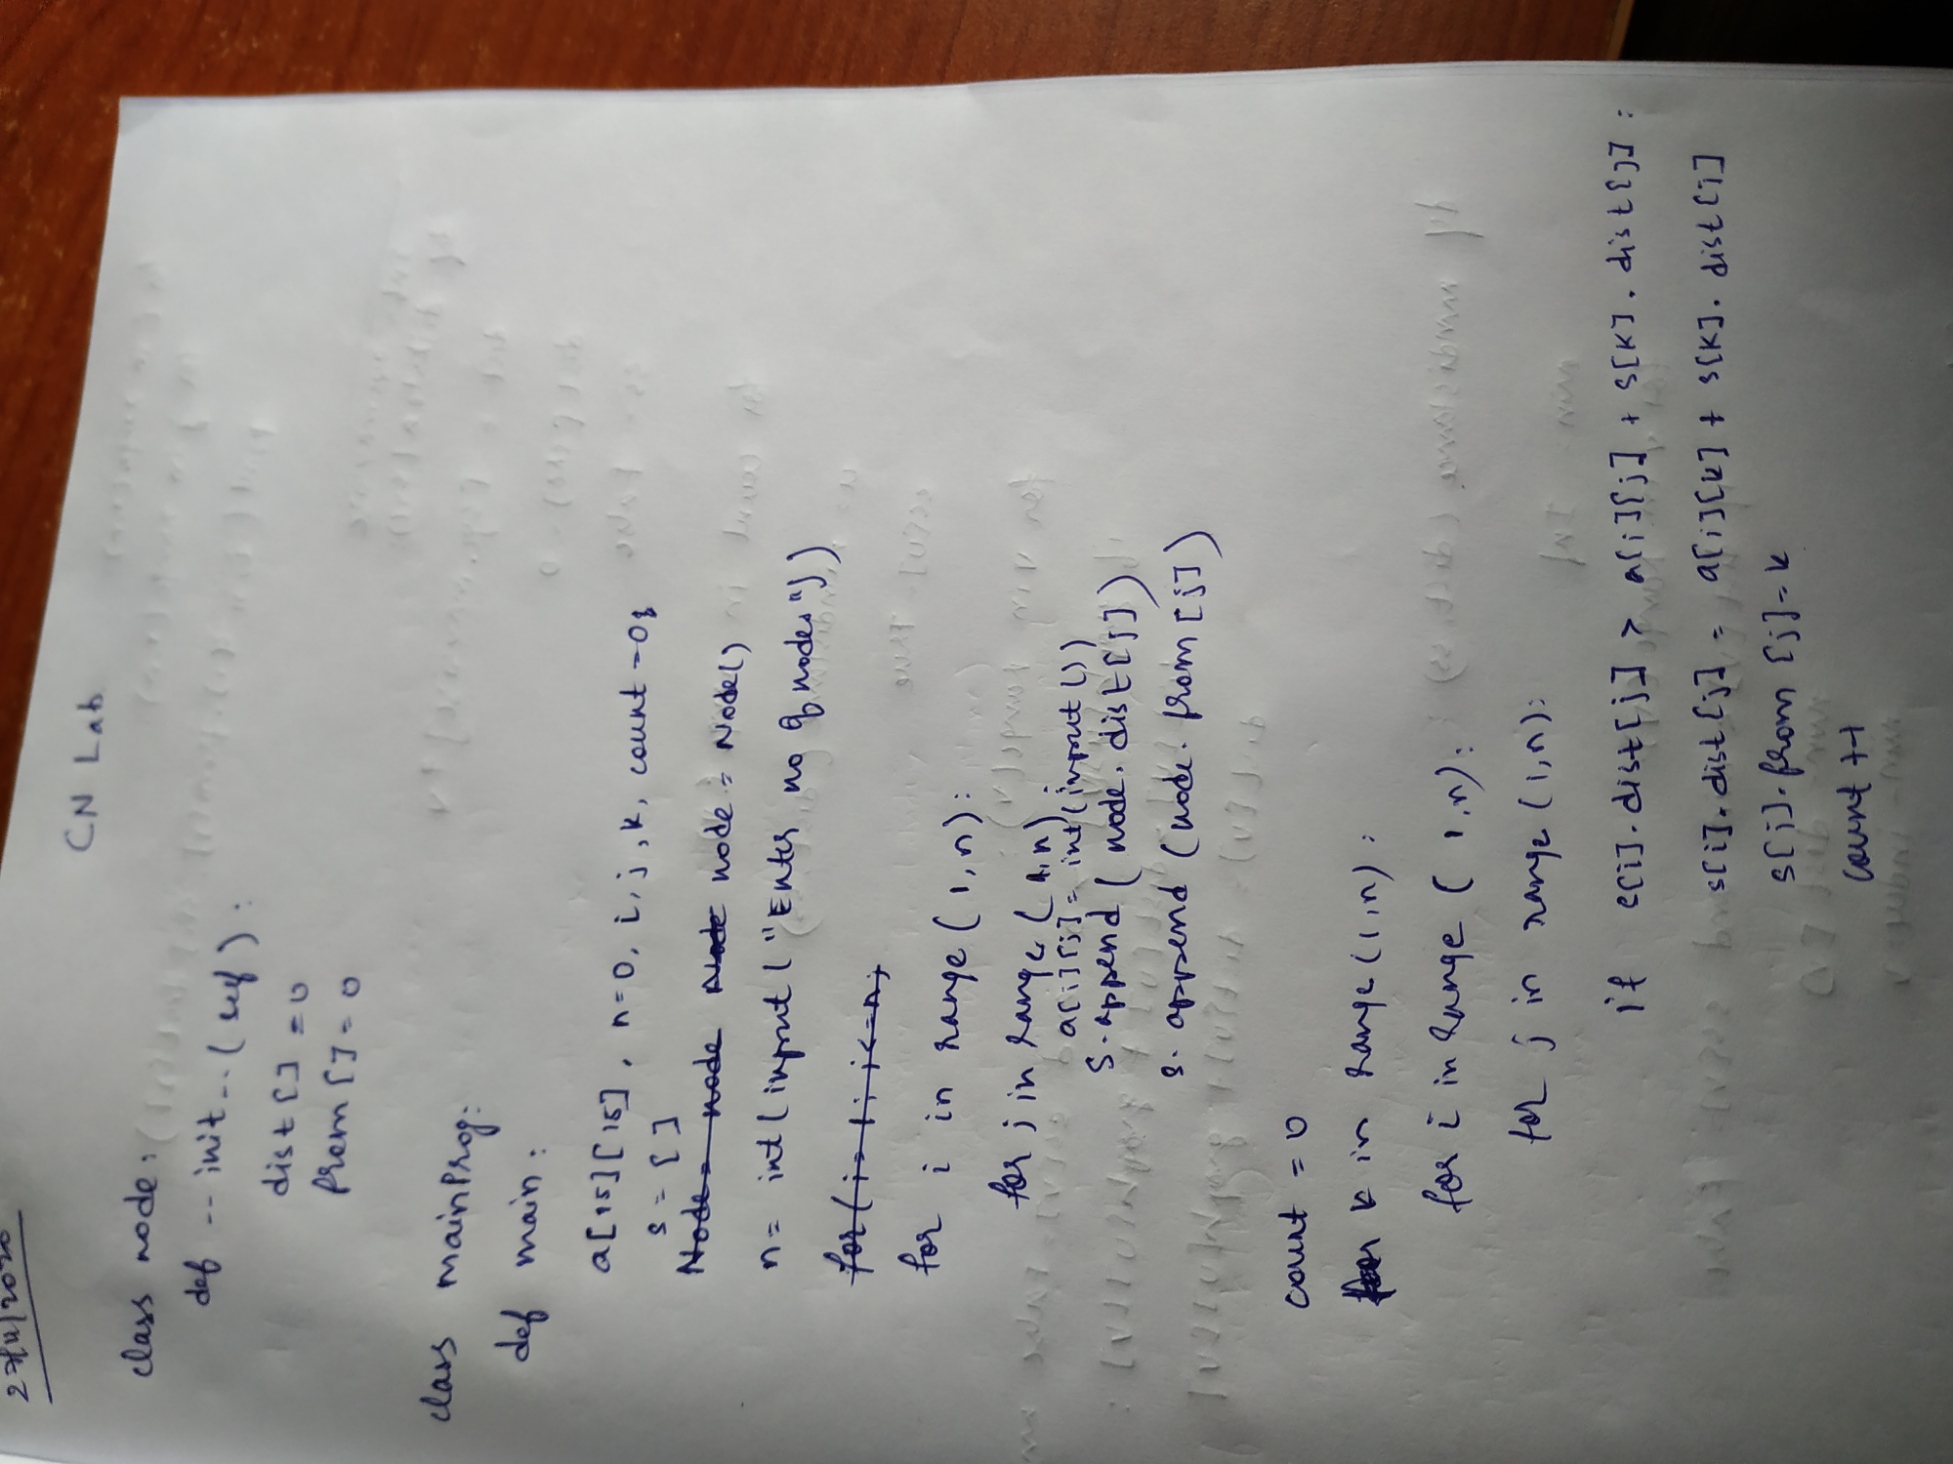 27/11/2020
CN Lab
class node:
def -- init -- (self):
dist[] = 0
from[] = 0
class mainProg:
def main:
a[15][15], n=0, i, j, k, count=0;
s = []
Node = node Node node = Node()
n = int(input("Enter no of nodes"))
for(i=1; i<=n;
for i in range(1,n):
for j in range(1,n)
a[i][j] = int(input())
S.append(node.dist[j])
s.append(node.from[j])
count = 0
for k in range(1,n):
for i in range(1,n):
for j in range(1,n):
if e[i].dist[j] > a[i][j] + s[k].dist[j]:
s[i].dist[j] = a[i][k] + s[k].dist[j]
s[i].from[j]=k
count++